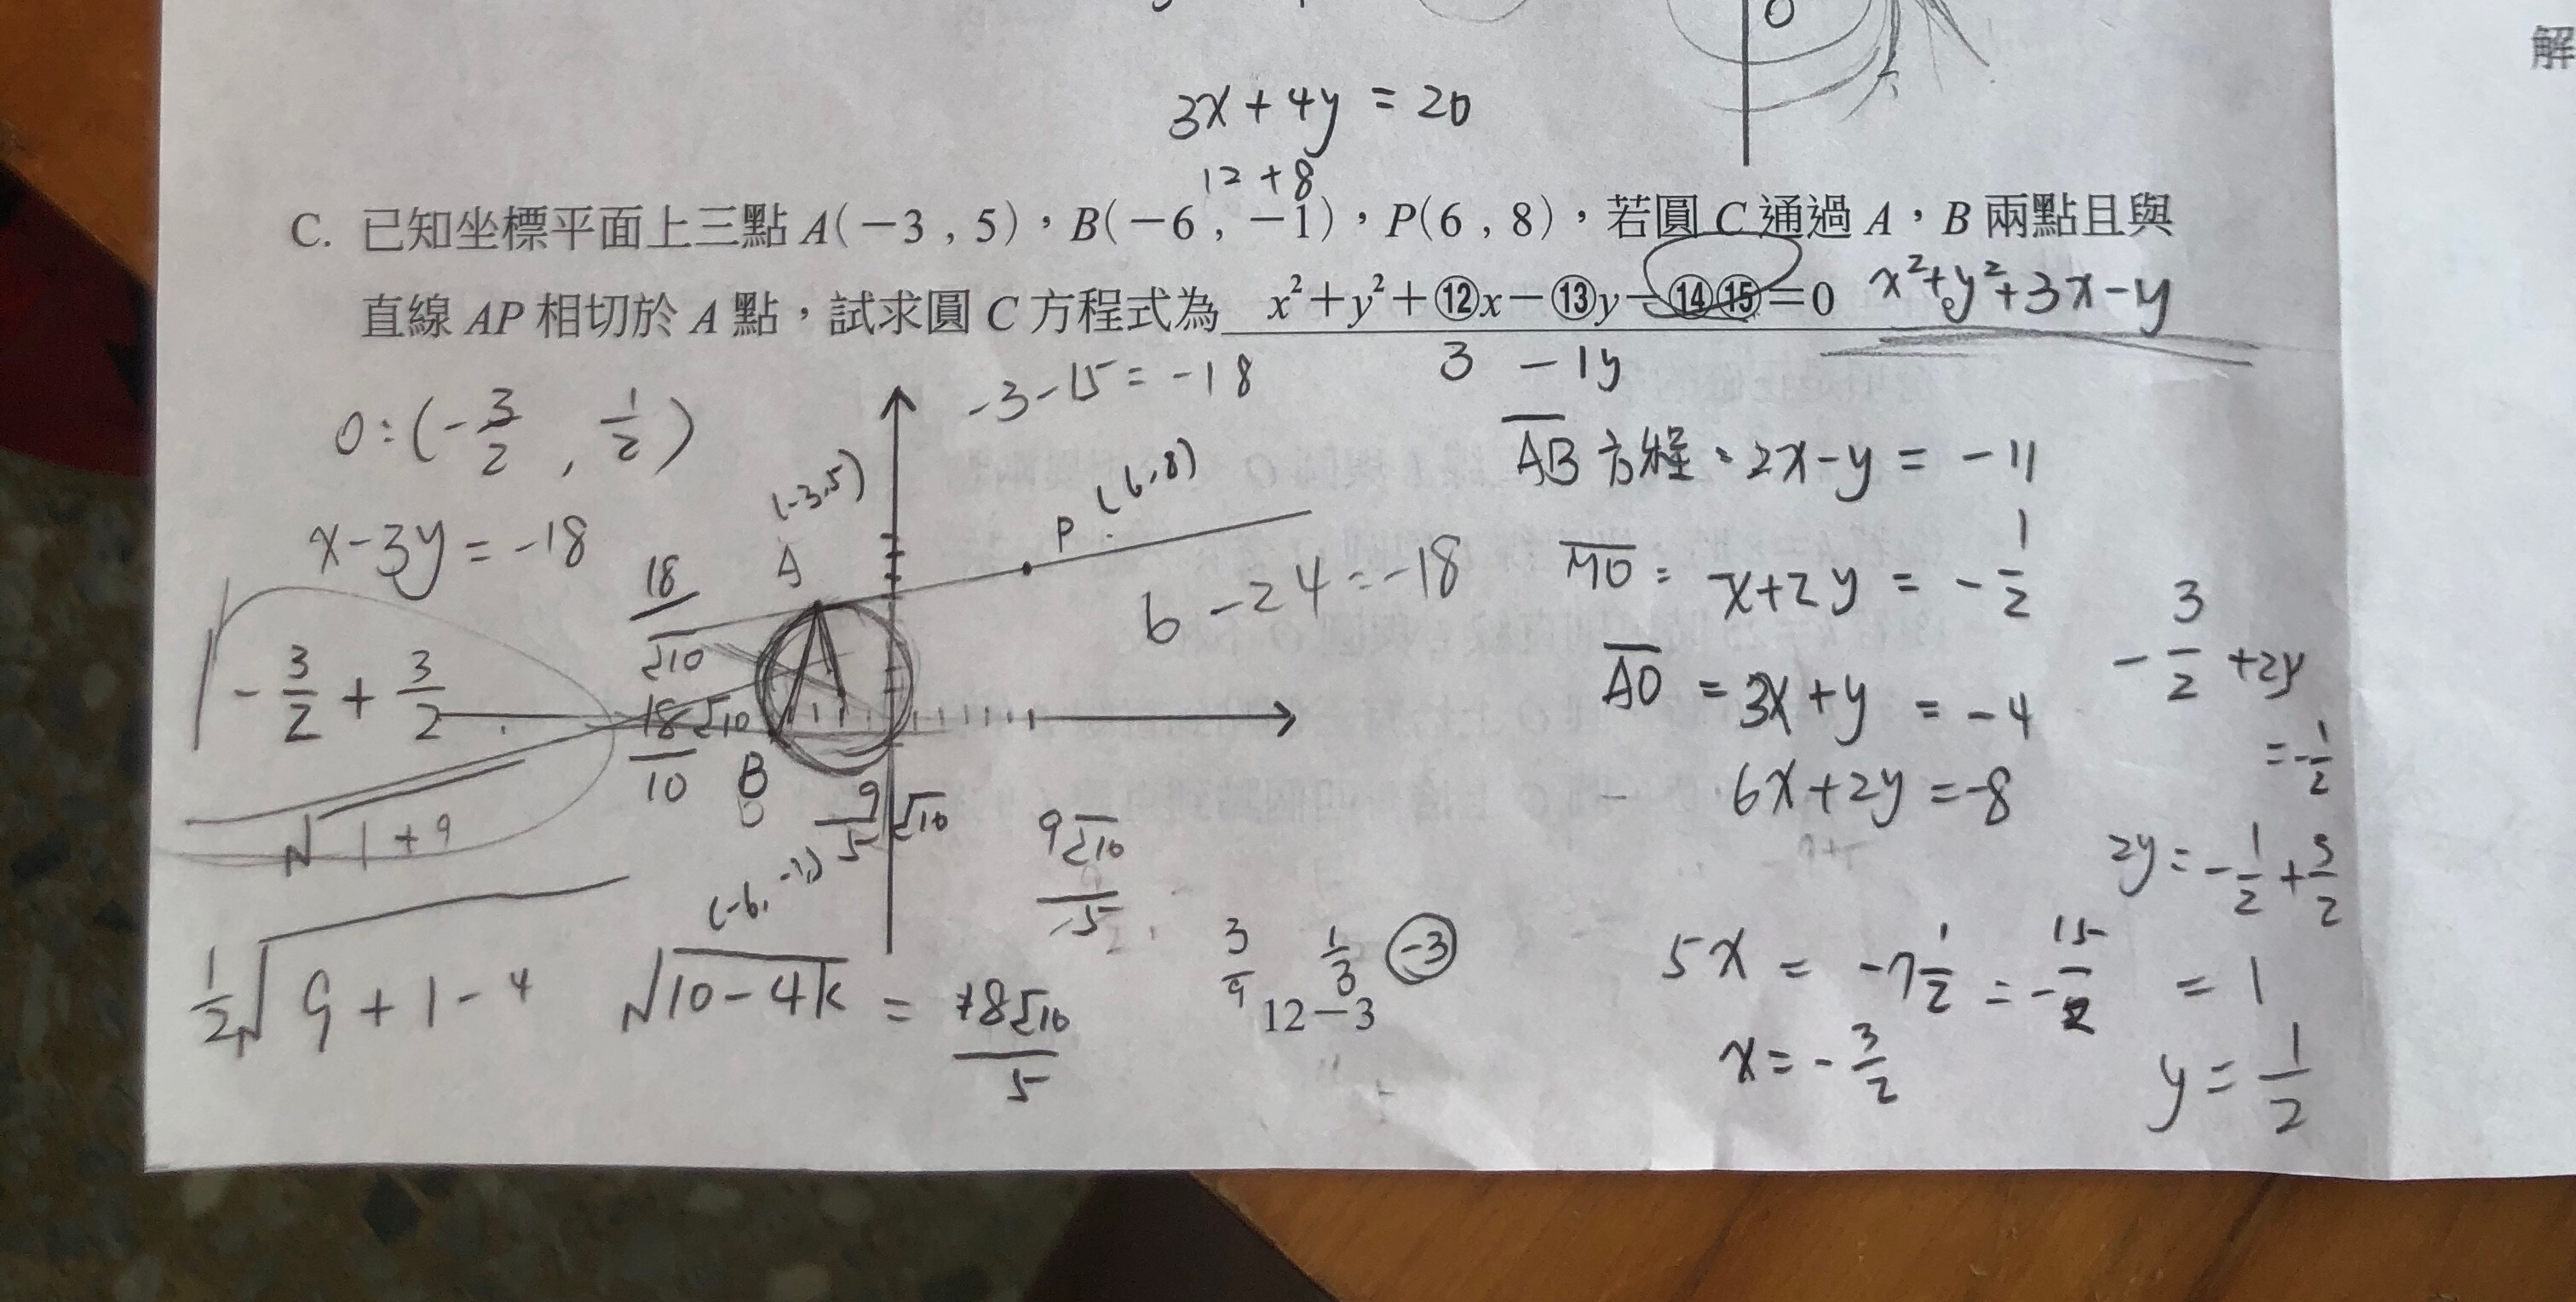 O
解
3x+4y=20
12+8
C. 已知坐標平面上三點A(-3,5),B(-6,-1),P(6,8),若圓C通過A,B兩點且與
直線AP相切於A點,試求圓C方程式為 x²+y²+⑫x-⑬y-⑭⑮=0。 x²+y²+3x-y
3 -1y
-3-15=-18
O:(-3/2, 1/2)
x-3y=-18
(-3,5)
A
P (6,8)
6-24=-18
18/√10
18√10/10
B
(-6,-1)
9/5 √10
9√10/5
-3/2+3/2
√1+9
1/2√9+1-4
√10-4k = 18√10/5
3/9 1/3 -3
12-3
AB方程:2x-y=-11
MO: x+2y=-1/2
AO=3x+y=-4
6x+2y=-8
5x=-7 1/2=-15/2
x=-3/2
-3/2+2y
=-1/2
2y=-1/2+3/2
=1
y=1/2